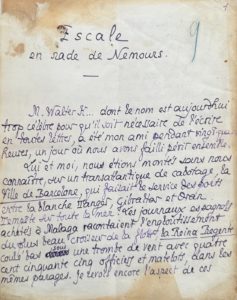 1
Escale
9
en rade de Nemours.
M. Walter K... dont le nom est aujourd'hui
trop célèbre pour qu'il soit nécessaire de l'écrire
en toutes lettres, a été mon ami pendant vingt-quatre
heures, un jour où nous avons failli périr ensemble.
Lui et moi, nous étions montés sans nous
connaître, sur un transatlantique de cabotage, la
Ville de Barcelone, qui faisait le service des ports
entre la blanche Tanger, Gibraltar et Oran.
Tempête sur toute la mer. Les journaux espagnols
achetés à Malaga racontaient l'engloutissement
du plus beau croiseur de la flotte la Reina Regente
coulé bas sous une trombe de vent avec quatre
cent cinquante cinq officiers et matelots, dans les
mêmes parages. Je revois encore l'aspect de ces